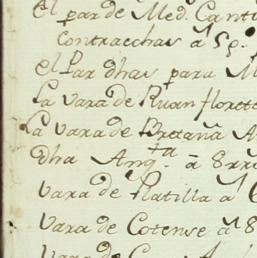 el par de Med. Canti
contraechas a 5 p.
el Par dhas para M
la vara de Ruan florete
La vara de Bretaña A
dha Ang.ta a 8 rr
vara de Platilla a 6
vara de Cotense a 8
vara de C